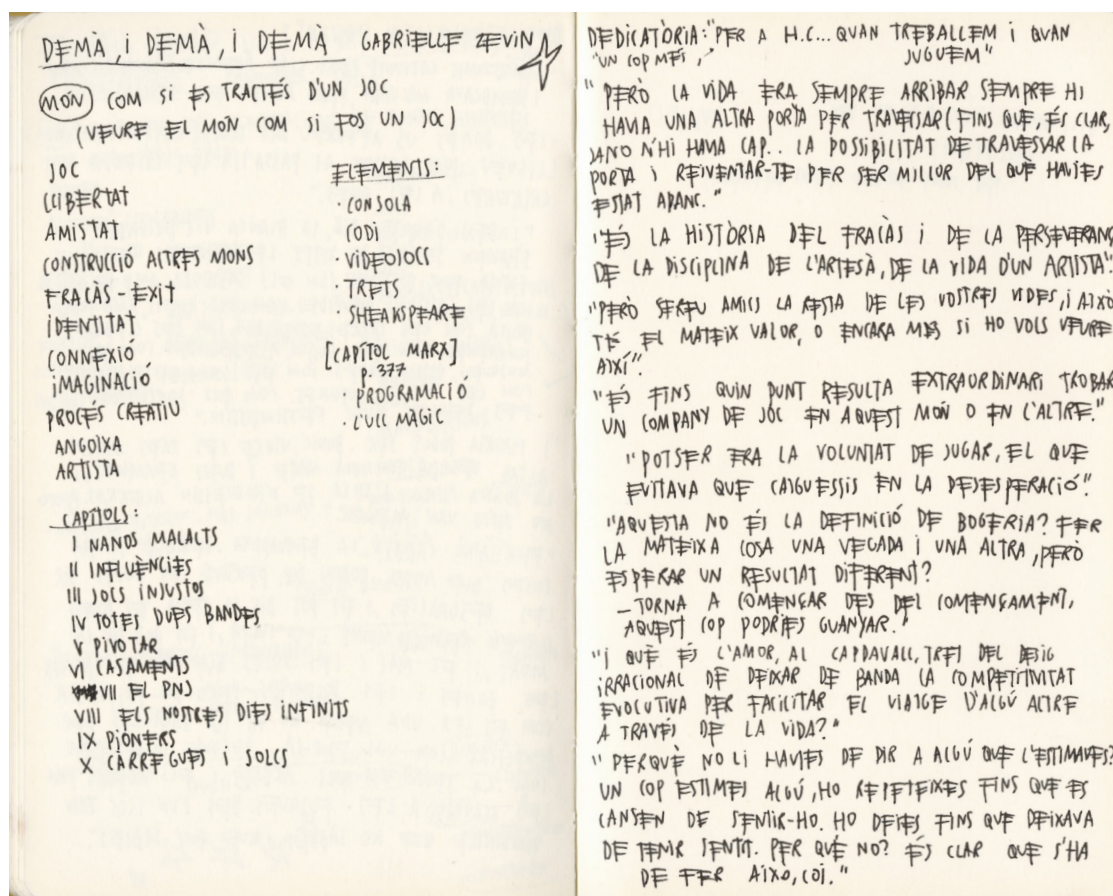 DEMÀ, i DEMÀ, i DEMÀ GABRIELLE ZEVIN
MÓN COM SI ES TRACTÉS D'UN JOC
(VEURE EL MÓN COM SI FOS UN JOC)
JOC
LLIBERTAT
AMISTAT
CONSTRUCCIÓ ALTRES MONS
FRACÀS - ÈXIT
iDENTITAT
CONNEXIÓ
iMAGINACIÓ
PROCÉS CREATIU
ANGOIXA
ARTISTA
ELEMENTS:
· CONSOLA
· CODI
· VIDEOJOCS
· TRETS
· SHEAKSPEARE
[CAPÍTOL MARX]
p.377
· PROGRAMACIÓ
· L'ULL MÀGIC
CAPÍTOLS:
I NANOS MALALTS
II INFLUÈNCIES
III JOCS INJUSTOS
IV TOTES DUES BANDES
V PIVOTAR
VI CASAMENTS
VII EL PNJ
VIII ELS NOSTRES DIES INFINITS
IX PIONERS
X CÀRREGUES i SOLCS
DEDICATÒRIA: "PER A H.C... QUAN TREBALLEM i QUAN
JUGUEM"
"UN COP MÉS,"
"PERÒ LA VIDA ERA SEMPRE ARRIBAR SEMPRE HI
HAVIA UNA ALTRA PORTA PER TRAVESSAR (FINS QUE, ÉS CLAR,
JA NO N'HI HAVIA CAP... LA POSSIBILITAT DE TRAVESSAR LA
PORTA i REINVENTAR-TE PER SER MILLOR DEL QUÈ HAVIES
ESTAT ABANS."
"ÉS LA HISTÒRIA DEL FRACÀS i DE LA PERSEVERANÇ
DE LA DISCIPLINA DE L'ARTESÀ, DE LA VIDA D'UN ARTISTA".
"PERÒ SEREU AMICS LA RESTA DE LES VOSTRES VIDES, i AIXÒ
TÉ EL MATEIX VALOR, O ENCARA MÉS SI HO VOLS VEURE
AIXÍ".
"ÉS FINS QUIN PUNT RESULTA EXTRAORDINARI TROBAR
UN COMPANY DE JOC EN AQUEST MÓN O EN L'ALTRE."
"POTSER ERA LA VOLUNTAT DE JUGAR, EL QUE
EVITAVA QUE CAIGUESSIS EN LA DESESPERACIÓ".
"AQUESTA NO ÉS LA DEFINICIÓ DE BOGERIA? FER
LA MATEIXA COSA UNA VEGADA i UNA ALTRA, PERÒ
ESPERAR UN RESULTAT DIFERENT?
_ TORNA A COMENÇAR DES DEL COMENÇAMENT,
AQUEST COP PODRIES GUANYAR."
"I QUÈ ÉS L'AMOR, AL CAPDAVALL, TRET DEL DESIG
iRRACIONAL DE DEIXAR DE BANDA LA COMPETITIVITAT
EVOLUTIVA PER FACILITAR EL VIATGE D'ALGÚ ALTRE
A TRAVÉS DE LA VIDA?"
"PERQUÈ NO LI HAVIES DE DIR A ALGÚ QUE L'ESTIMAVES?
UN COP ESTIMES ALGÚ, HO REPETEIXES FINS QUE ES
CANSEN DE SENTIR-HO. HO DEIES FINS QUE DEIXAVA
DE TENIR SENTIT. PER QUÉ NO? ÉS CLAR QUE S'HA
DE FER AIXÒ, COI."